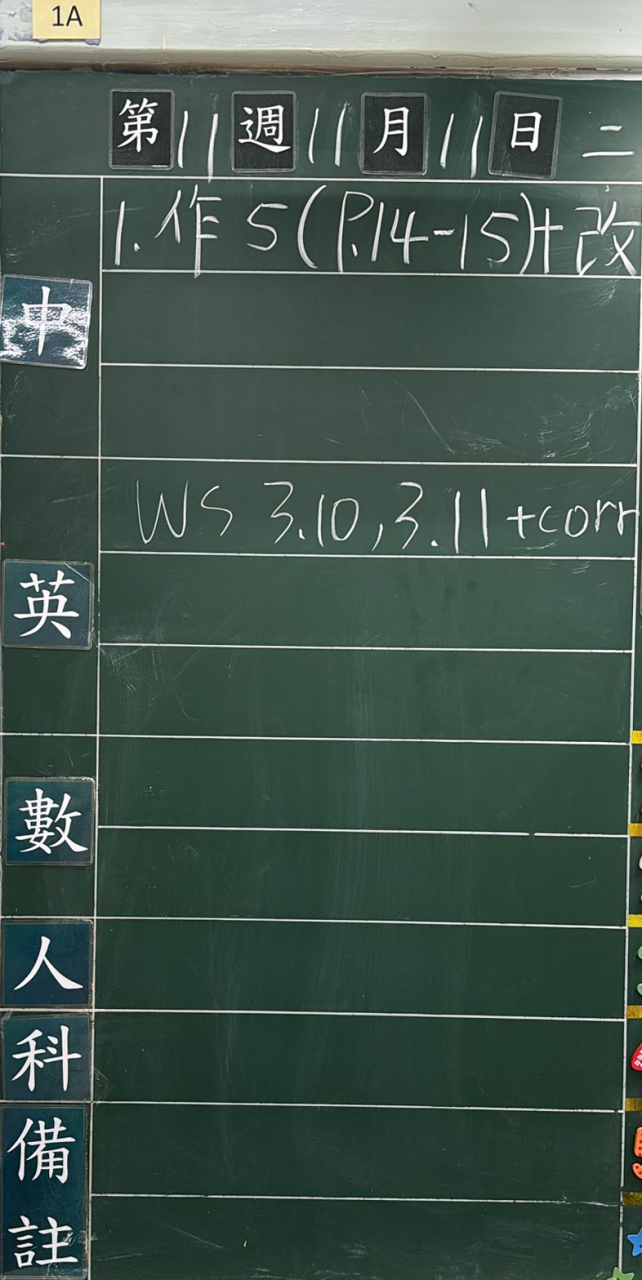 1A
第11週11月11日 二
1.作5(P.14-15)+改
中
WS 3.10,3.11+corr
英
數
人
科
備
註